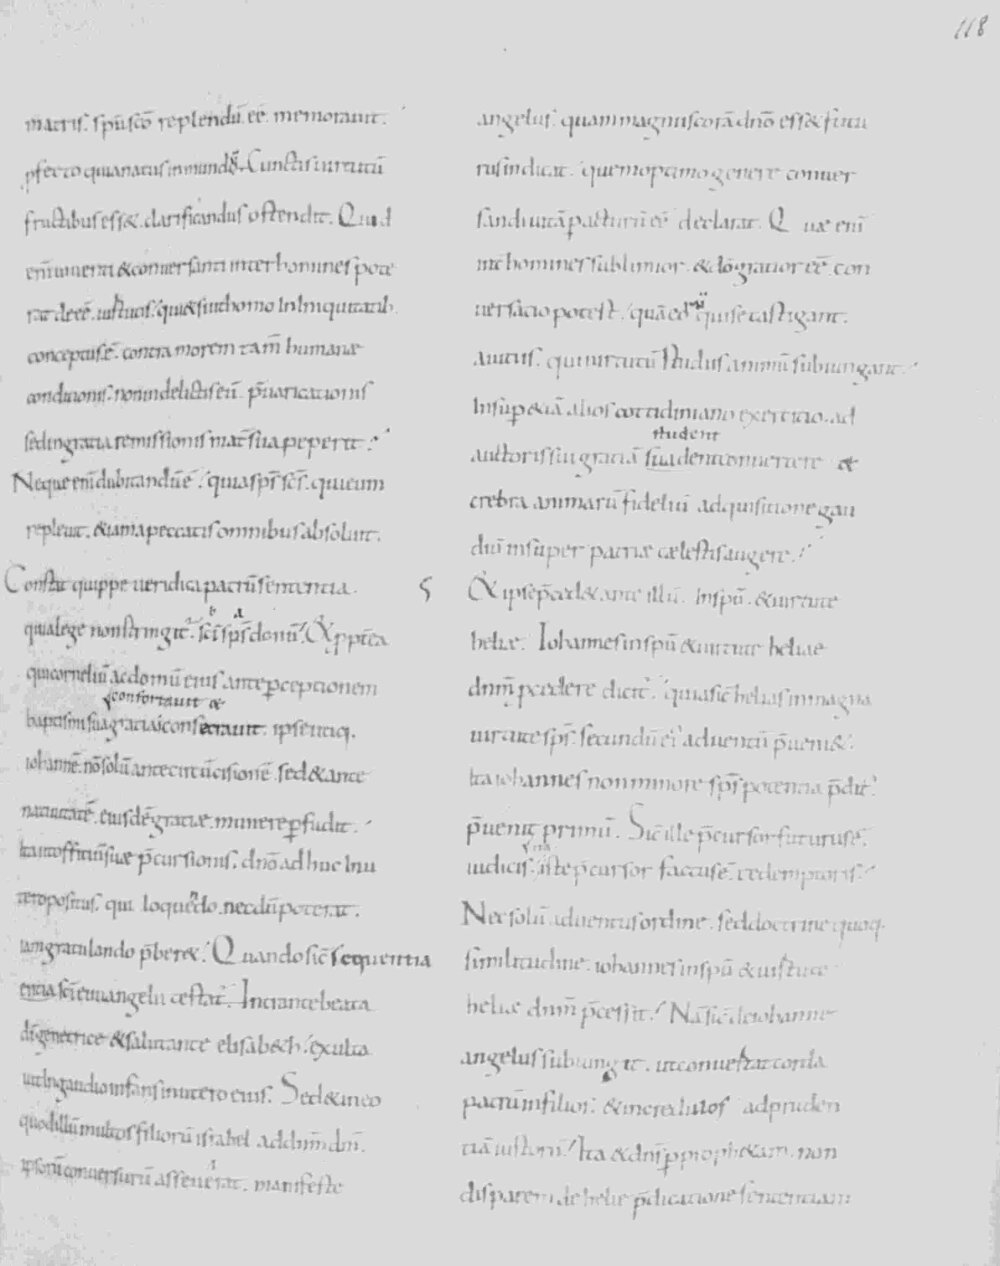 118
matris. spū scō replendū. eē. memorauit.
ꝓfecto quia natus in mundō. Cunctis uirtutū
fructibus ess&. clarificandus ostendit. Quid
enī uiuenti & conuersanti inter homines pote
rat deeē. uirtutis. qui
conceptus ē. contra morem tam̄ humanae
conditionis. non in delictis eū. p̄uaricationis
sed in gratia remissionis mat̄ sua peperit.
Neque enī dubitandū ē. quia sp̄s sc̄s. qui eum
repleuit. & iam a peccatis omnibus absoluit.
Constat quippe ueridica patrū sententia.
quia lege non stringit̄. sc̄i sp̄s donū. Et
qui corneliū ac domū eius ante perceptionem
confortauit &
baptismi sua gratia consecrauit. ipse utiq.
iohannē. nō solū ante circūcisionē. sed & ante
natiuitatē. eiusdē gratiae. munere perfudit.
Ita ut officiū suae p̄cursionis. dnō adhuc In u
tero positus. qui loquendo. necdū poterat.
iam gratulando p̄ber&. Quando sic̄ sequentia
entia sc̄i euuangelii testat̄. Intrante beata
dī genetrice & salutante elisabeth. exulta
uit In gaudio infans in utero eius. Sed & in eo
quod illū multos filiorū israhel ad dnm̄ dm̄.
ipsorū conuersurū asseuerat. manifeste
angelus. quam magnus corā dnō ess& futu
rus indicat. quem optimo genere conuer
sandi uitā pacturū eē declarat. Quae enī
int̄ homines sublimior. & dō gratior eē. con
uersatio potest. quā eorū qui se castigant.
auitiis. qui uirtutū studiis animū subiungant.
Insup̄ & iā alios cottidiano exercitio. ad
student
auctoris sui gratiā suadent conuertere &
crebra animarū fidelium adquisitione gau
diū insuper patriae caelestis augere.
Et ipse p̄ced& ante illū. In spū. & uirtute
heliae. Iohannes in spū & uirtute heliae
dnm̄ p̄cedere dicit̄. quia sic̄ helias in magna
uirtute sp̄s. secundū ei aduentū p̄ueni&.
Ita iohannes non minore sp̄s potentia p̄dit̄.
p̄uenit primū. Sic̄ ille p̄cursor futurus ē.
iudicis. iste p̄cursor factus ē. redemptoris.
Nec solū aduentus ordine. sed doctrine quoq.
similitudine. iohannes in spū & uirtute
heliae dnm̄ p̄cessit. Nā sic̄ de iohanne
angelus subiungit. ut conuertat corda
patrū in filios. & incredulos ad pruden
tiā iustorū. Ita & dn̄s ꝑ proph&am. non
disparem de helie p̄dicatione sententiam